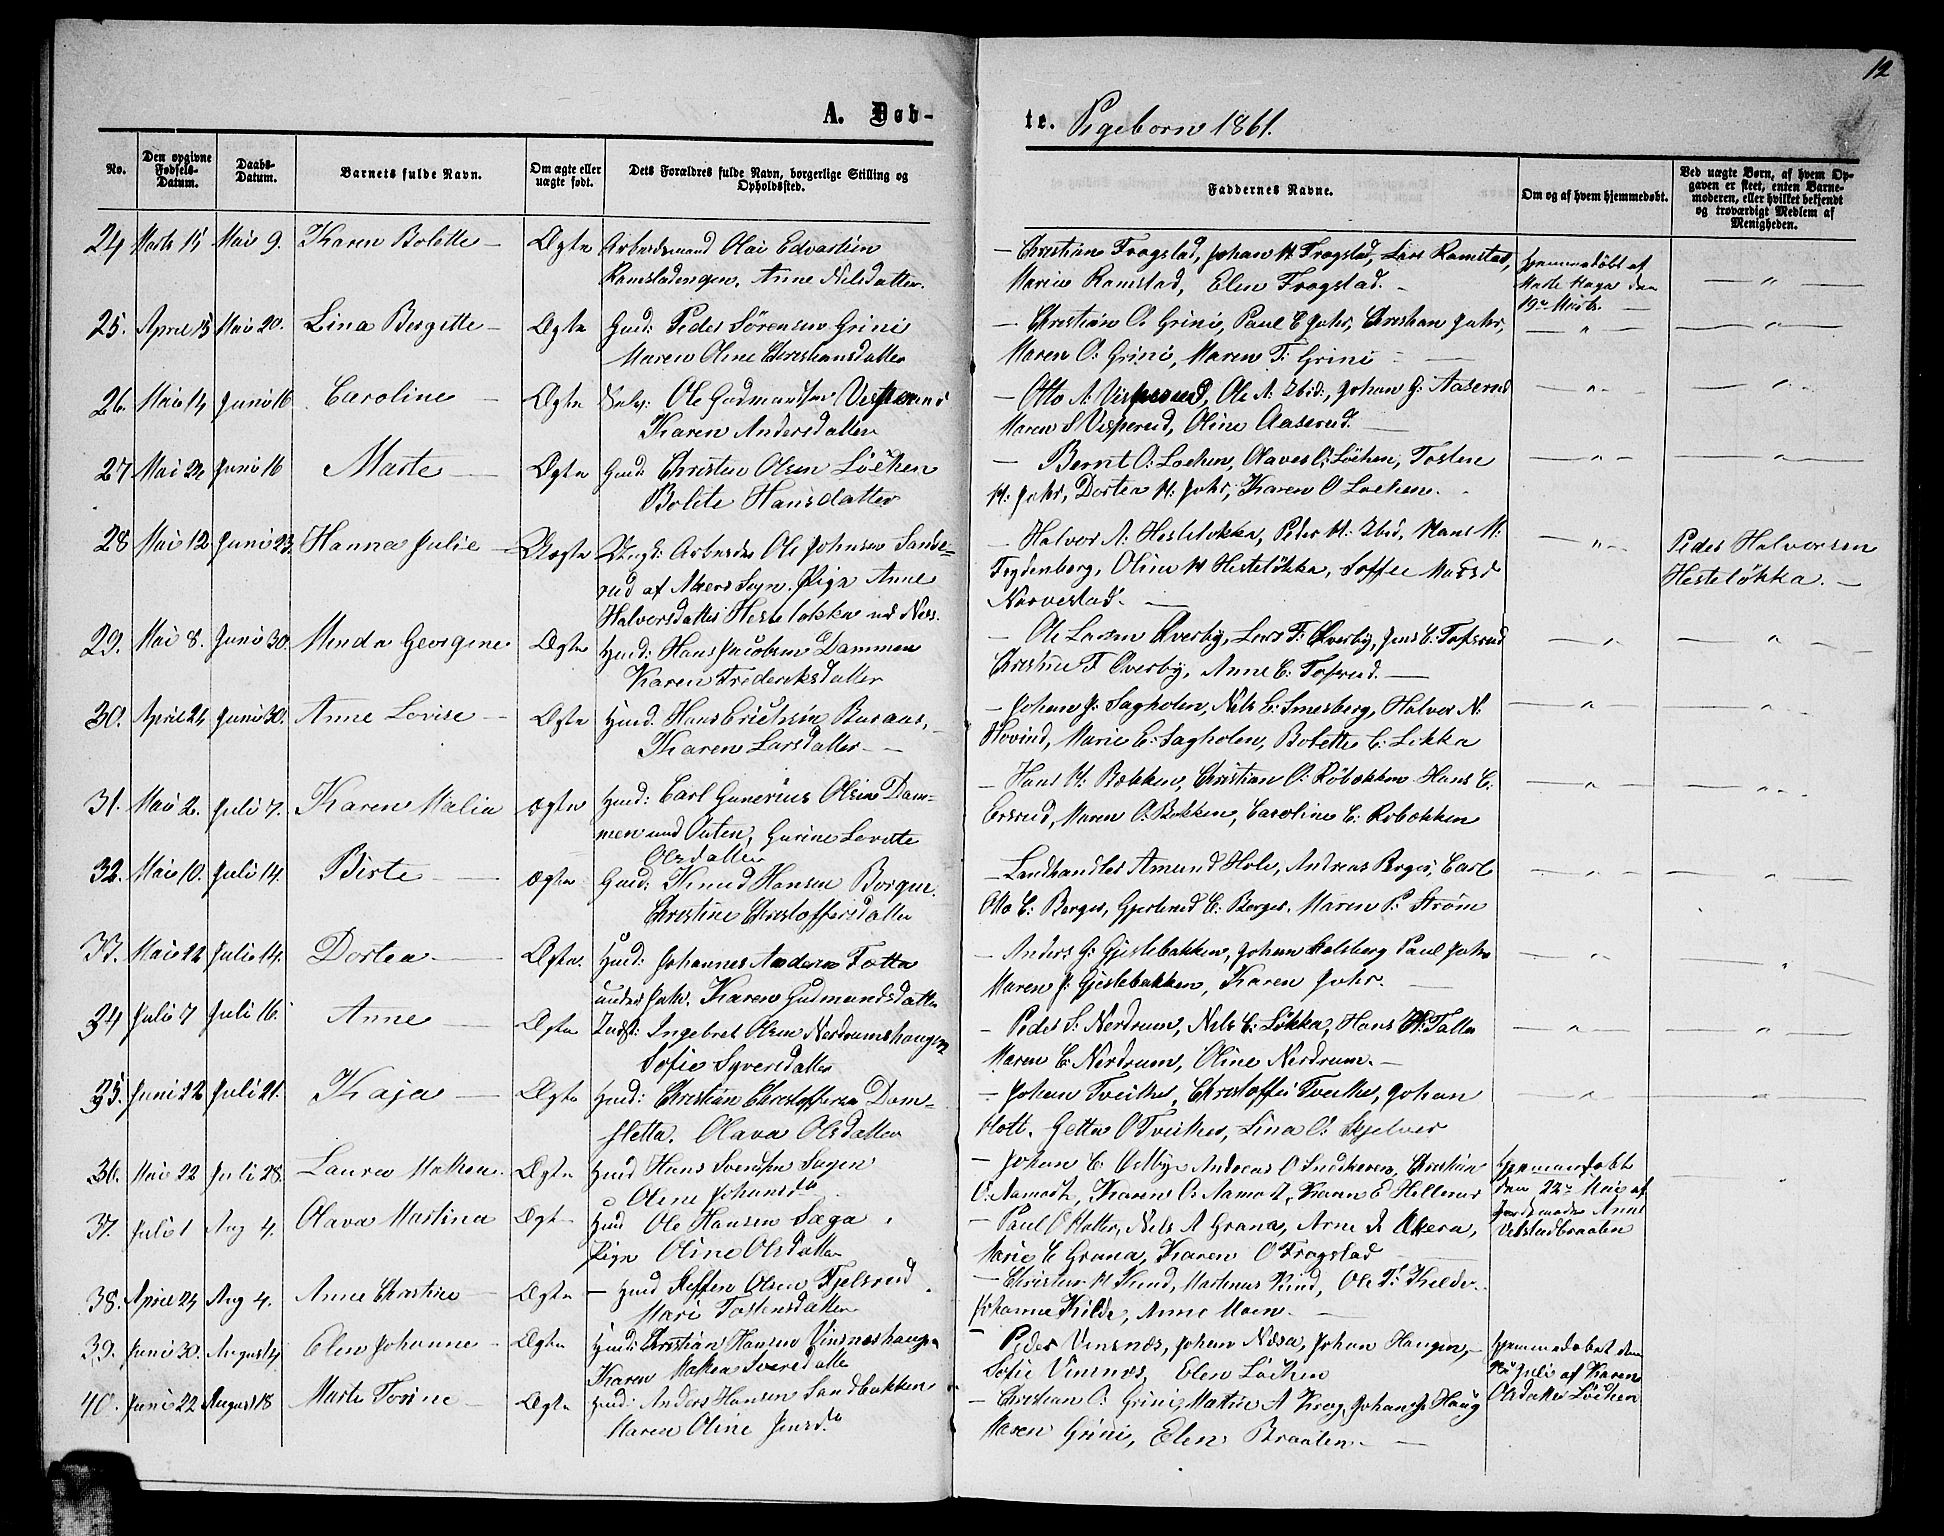 12
A. Døb-
te. Pigebørn 1861.
No.
Den opgivne Fødsels-Datum.
Daabs-Datum.
Barnets fulde Navn.
Om ægte eller uægte født.
Dets Forældres fulde Navn, borgerlige Stilling og Opholdssted.
Faddernes Navne.
Om og af hvem hjemmedøbt.
Ved uægte Børn, af hvem Opgaven er skeet, enten Barnemoderen, eller hvilket bekjendt og troværdigt Medlem af Menigheden.
24 Marts 15 Mai 9. Karen Bolette — Ægte Arbeidsmand Olai Edvardsen
Ramstadengen, Anne Nilsdatter.
— Christian Frogstad, Johan H Frogstad, Lars Ramstad,
Marie Ramstad, Elen Frogstad. —
Hjemmedøbt af
Marte Haga den
19de Marts.
25. April 15 Mai 20. Lina Birgitte — Ægte Gmd: Peder Sørensen Grini
Maren Oline Christiansdatter
— Christian O. Grini, Paul E Jahr, Christian Jahr,
Maren O: Grini, Maren T: Grini —
26. Mai 14 Juni 16 Caroline — Ægte Selv: Ole Gudmundsen
Karen Andersdatter
— Otto A: Visperud, Ole A: Ibid:, Johan G: Aaserud
Maren S Visperud, Oline Aaserud. —
27 Mai 24 Juni 16 Marte — Ægte Gmd: Christen Olsen Løchen
Bolete Hansdatter
— Bernt O: Løchen, Olaves O: Løchen, Tosten
H: Jahr, Dortea H: Jahr, Karen O Løchen.
28 Mai 12 Juni 23. Hanna Julie — Uægte Ungk: Arbeider Ole Johnsen Sande-
rud af Næs Sogn. Pige Anne
Halvorsdatter Hesteløkka
— Halvor A: Hesteløkka, Peder H: Ibid, Hans H:
Oline H Hesteløkka, Soffie
Narvestad. —
Peder Halvorsen
Hesteløkka. —
29. Mai 8. Juni 30. Minda Georgine Ægte Hmd: Hans Jacobsen Dammen
Karen Frideriksdatter
— Ole Larsen Overby, Lars F: Overby, Jens C: Tofsrud
Christine F Overby, Anne C: Tofsrud. —
30. April 24 Juni 30. Anne Lovise — Ægte Hmd. Hans Erichsen Buraas,
Karen Larsdatter —
— Johan J: Sagholen, Nils C: Smesberg, Halvor N:
Hovind, Marie E: Sagholen, Bolette C: Løkka
31. Mai 2. Juli 7. Karen Malia Ægte Hmd: Carl Gunerius Olsen Dam-
men und Outen, Gurine Lovette
Olsdatter
— Hans H: Bækken, Christian O: Robækken Hans E:
Ersrud, Maren O. Bækken, Caroline E: Robækken
32. Mai 10. Juli 14. Birte — Ægte Gmd: Knud Hansen Borgen
Christine Christoffersdatter
— Landhandler Amund Hole, Andreas Berger, Carl
Otto C: Berger, Gjertrud C: Berger. Maren P: Strøm
33. Mai 22 Juli 14. Dortea — Ægte. Hmd: Johannes Anders Tætta
under Jahr. Karen Gudmundsdatter
— Anders J: Gjestebakken, Johan Kalsberg Paul Jahr
Maren J: Gjestebakken, Karen Jahr. —
34 Juli 7 Juli 16. Anne — Ægte Indst: Ingebret Olsen Nerdrumshaugen
Sofie Syversdatter
— Peder S: Nerdrum, Nils C: Løkka, Hans H: Talla
Maren C: Nerdrum, Oline Nerdrum. —
35. Juni 22 Juli 21. Kaja — Ægte Hmd: Christian Christoffersen Dam-
sletta. Olava Olsdatter
— Johan Tveiter, Christoffer Tveiter, Johan
Holt. Getta O Tveiter, Lina O: Skjelver
36. Mai 22 Juli 28. Laura Mathea. Ægte Hmd Hans Svensen Sagen
Oline Johansdr
— Johan C: Velby Andreas O Sundhaven, Christian
O: Aamodt, Karen O: Aamodt, Karen E Hellerud
Hjemmedøbt
den 22de Mai af
Jordemoder Anne
Velstadbraaten
37. Juli 1 Aug 4. Olava Martina Ægte Hmd Ole Hansen Sæga
Pige Oline Olsdatter
— Paul O Hatter, Nils A Grana, Arne Akera,
Marie E Grana, Karen O Frogstad
38. April 24 Aug 4. Anne Christine — Ægte — Hmd Steffen Olsen Fjelsrud
Mari Tostensdatter
— Christian H Kind, Martinus Kind, Ole T: Kilde.
Johanne Kilde, Anne Moen. —
39. Juni 30. August 4 Elen Johanne — Ægte Hmd: Christian Hansen Vinsneshaugen
Karen Mathea Iversdatter
— Peder Vinsnæs, Johan Næsa, Johan Haugen, —
Sofie Vinsnæs, Elen Løchen
Hjemmedøbt den
Juli af Karen
Olsdatter Løchen
40. Juni 22 August 18 Marte Torine — Ægte Hmd: Anders Hansen Sandbakken
Maren Oline Jensdr
— Christian O: Grini, Martin A Krog, Johan J: Haug
Maren Grini, Elen Braaten. —